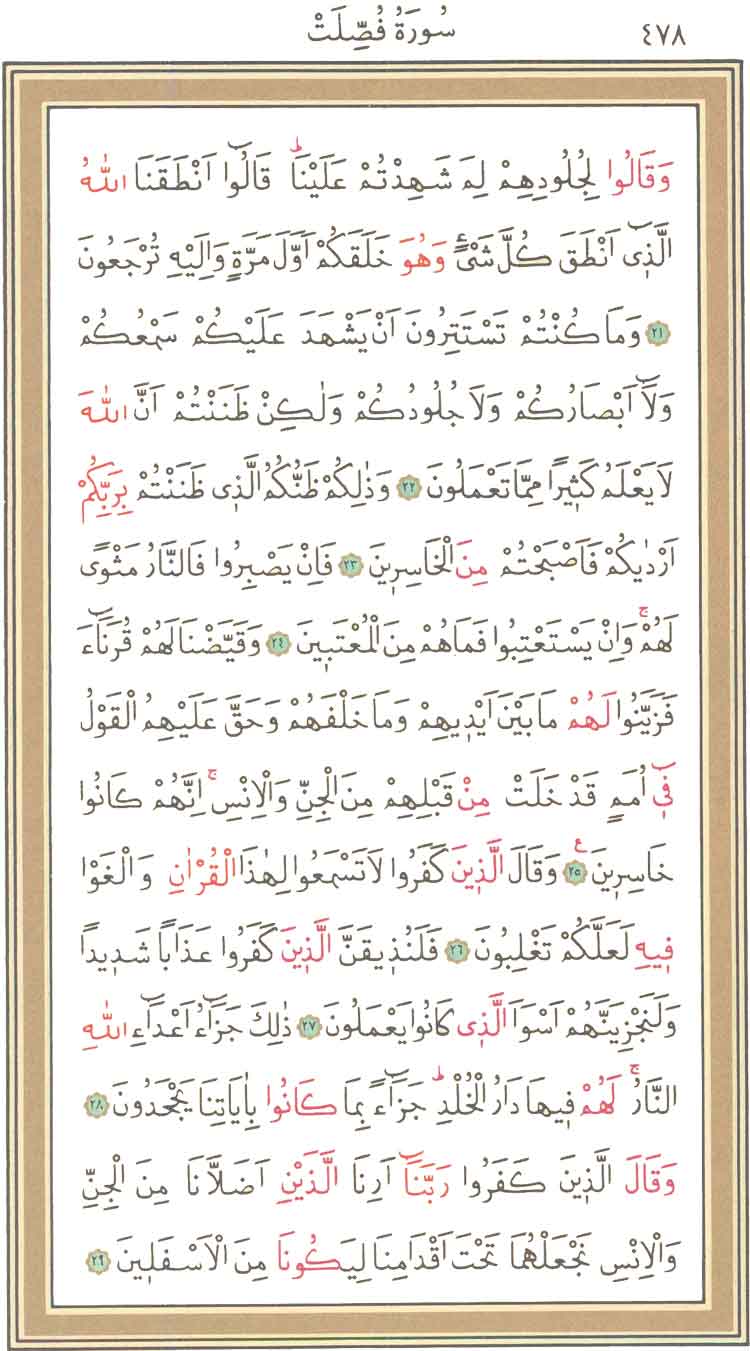 سُورَةُ فُصِّلَتْ ٤٧٨
وَقَالُوا لِجُلُودِهِمْ لِمَ شَهِدْتُمْ عَلَيْنَاۜ قَالُٓوا اَنْطَقَنَا اللّٰهُ
الَّذٖٓى اَنْطَقَ كُلَّ شَىْءٍ وَهُوَ خَلَقَكُمْ اَوَّلَ مَرَّةٍ وَاِلَيْهِ تُرْجَعُونَ
٢١ وَمَا كُنْتُمْ تَسْتَتِرُونَ اَنْ يَشْهَدَ عَلَيْكُمْ سَمْعُكُمْ
وَلَٓا اَبْصَارُكُمْ وَلَا جُلُودُكُمْ وَلٰكِنْ ظَنَنْتُمْ اَنَّ اللّٰهَ
لَا يَعْلَمُ كَثٖيرًا مِمَّا تَعْمَلُونَ ٢٢ وَذٰلِكُمْ ظَنُّكُمُ الَّذٖى ظَنَنْتُمْ بِرَبِّكُمْ
اَرْدٰيكُمْ فَاَصْبَحْتُمْ مِنَ الْخَاسِرٖينَ ٢٣ فَاِنْ يَصْبِرُوا فَالنَّارُ مَثْوًى
لَهُمْۚ وَاِنْ يَسْتَعْتِبُوا فَمَا هُمْ مِنَ الْمُعْتَبٖينَ ٢٤ وَقَيَّضْنَا لَهُمْ قُرَنَٓاءَ
فَزَيَّنُوا لَهُمْ مَا بَيْنَ اَيْدٖيهِمْ وَمَا خَلْفَهُمْ وَحَقَّ عَلَيْهِمُ الْقَوْلُ
فٖٓى اُمَمٍ قَدْ خَلَتْ مِنْ قَبْلِهِمْ مِنَ الْجِنِّ وَالْاِنْسِۚ اِنَّهُمْ كَانُوا
خَاسِرٖينَ ع ٢٥ وَقَالَ الَّذٖينَ كَفَرُوا لَا تَسْمَعُوا لِهٰذَا الْقُرْاٰنِ وَالْغَوْا
فٖيهِ لَعَلَّكُمْ تَغْلِبُونَ ٢٦ فَلَنُذٖيقَنَّ الَّذٖينَ كَفَرُوا عَذَابًا شَدٖيدًا
وَلَنَجْزِيَنَّهُمْ اَسْوَاَ الَّذٖى كَانُوا يَعْمَلُونَ ٢٧ ذٰلِكَ جَزَٓاءُ اَعْدَٓاءِ اللّٰهِ
النَّارُۚ لَهُمْ فٖيهَا دَارُ الْخُلْدِۜ جَزَٓاءً بِمَا كَانُوا بِاٰيَاتِنَا يَجْحَدُونَ ٢٨
وَقَالَ الَّذٖينَ كَفَرُوا رَبَّنَٓا اَرِنَا الَّذَيْنِ اَضَلَّانَا مِنَ الْجِنِّ
وَالْاِنْسِ نَجْعَلْهُمَا تَحْتَ اَقْدَامِنَا لِيَكُونَا مِنَ الْاَسْفَلٖينَ ٢٩